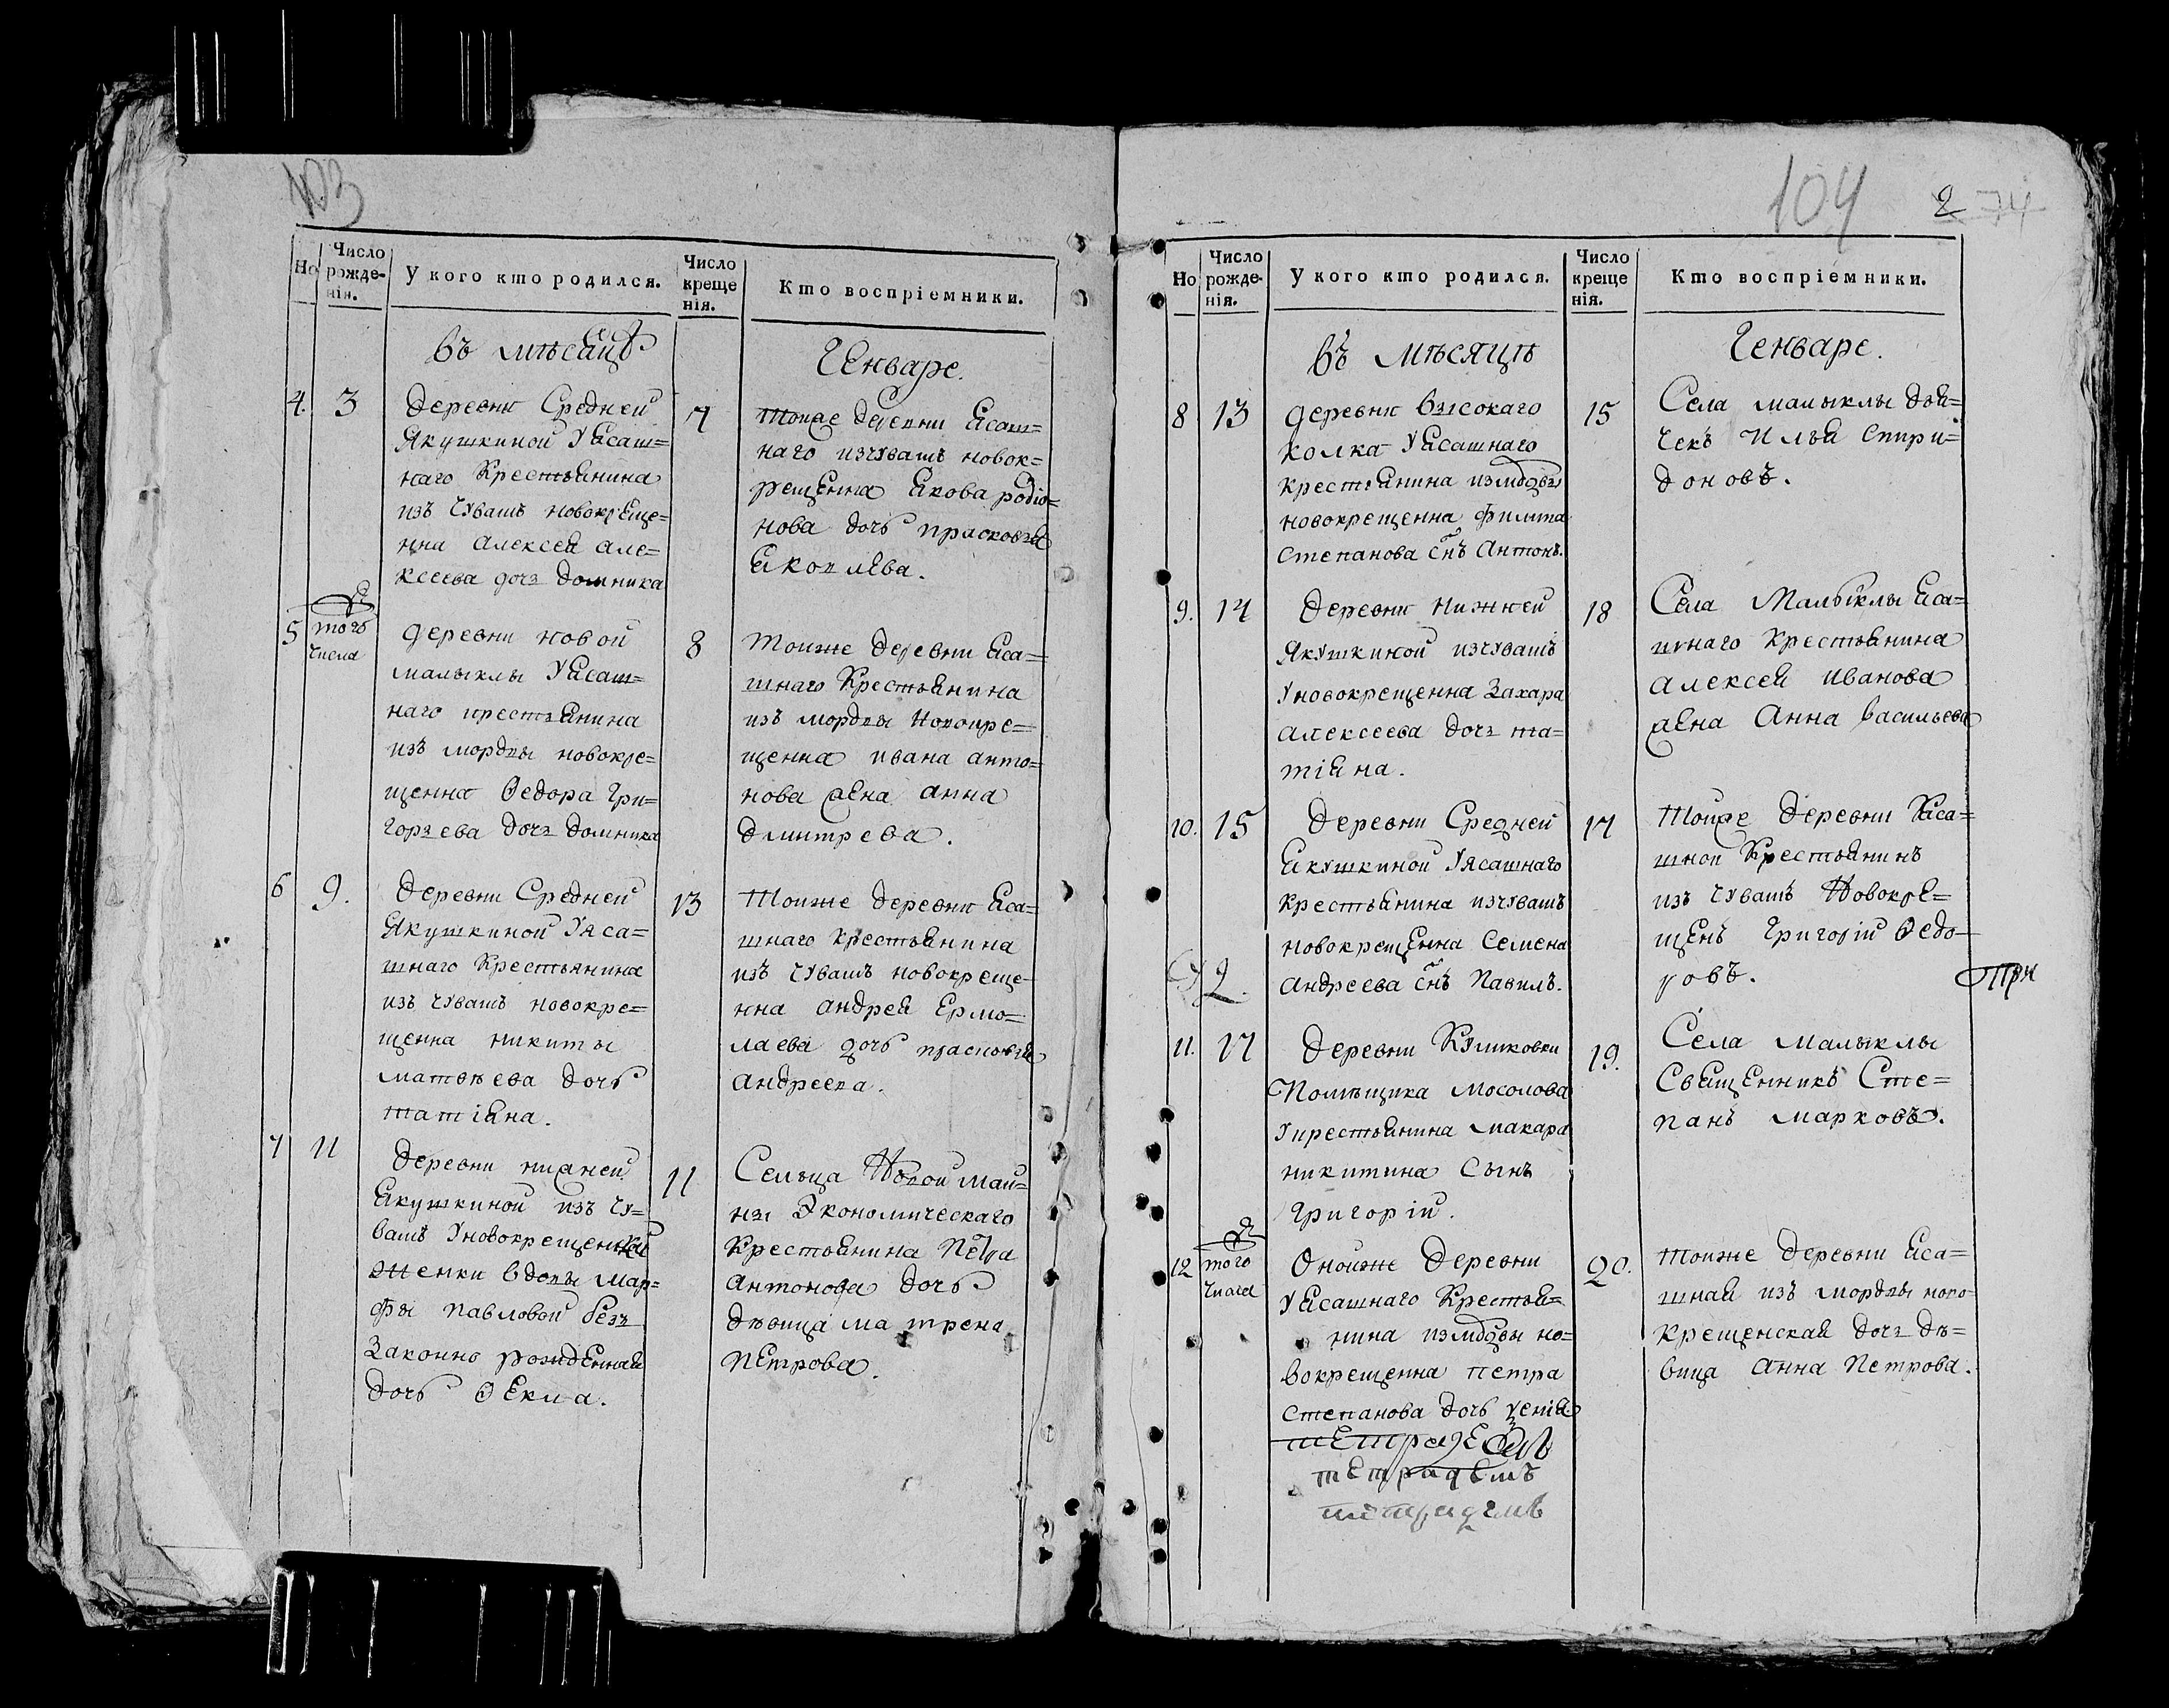 103
Но
Число рожде-нія.
У кого кто родился.
Число креще нія.
Кто воспріемники.
въ мѣсяцѣ
Генваре.
4.
3
деревни Средней
Якушкиной Уясаш=
наго Крестьянина
изъ чувашъ новокреще=
нна алексея але=
ксеева дочь домника
7
тоиже деревни ясаш=
наго изчувашъ новок=
рещенна якова родіо=
нова дочь прасковья
яковлева.
5
того
числа
деревни новой
малыклы Уясаш=
наго крестьянина
изъ мордвы новокре=
щенна Ѳедора Гри=
горьева дочь домника
8
Тоиже деревни яса=
шнаго Крестьянина
изъ мордвы новокре=
щенна ивана анто=
нова жена анна
дмитрева.
6
9.
деревни Средней
Якушкиной Уяса=
шнаго Крестьянина
изъ чувашъ новокре=
щенна никиты
матвѣева дочь
татіяна.
13
Тоиже деревни яса=
шнаго крестьянина
изъ чувашъ новокреще=
нна андрея ермо=
лаева дочь прасковья
андреева.
7
11
деревни нижней
якушкиной изъ чу=
вашъ Уновокрещенской
женки вдовы мар=
фы павловой без
законно рожденная
дочь Ѳекла.
11
Сельца Новой маи=
ны Экономическаго
Крестьянина Петра
Антонова дочь
дѣвица матрена
Петрова.
104
2 74
Но
Число рожде-нія.
У кого кто родился.
Число креще нія.
Кто воспріемники.
въ мѣсяцѣ
Генваре.
8
13
деревни высокаго
колка Уясашнаго
крестьянина измордвы
новокрещенна филипа
степанова снъ антонъ.
15
Села малыклы дья=
чекъ Илья Спири=
доновъ.
9.
14
деревни нижней
якушкиной изчувашъ
Уновокрещенна Захара
алексеева дочь та=
тіяна.
18
Села Малыклы яса=
шнаго крестьянина
алексея иванова
жена Анна васильева
10.
15
деревни Средней
якушкиной Уясашнаго
крестьянина изчувашъ
новокрещенна Семена
андреева снъ Павилъ.
17
Тоиже деревни яса=
шнои Крестьянинъ
изъ чувашъ Новокре=
щенъ Григорій Ѳедо=
ровъ.
2.
три
11.
17
деревни Куликовки
Помѣщика Мосолова
Укрестьянина макара
никитина сынъ
григорій.
19.
Села малыклы
Священникъ Сте=
панъ марковъ.
12
того
числа
Оноиже деревни
Уясашнаго Крестья=
нина измордвы но=
вокрещенна петра
степанова дочь
20.
Тоиже деревни яса=
шная изъ мордвы ново=
крещенская дочь дѣ=
вица анна Петрова.